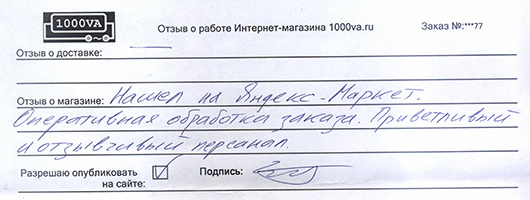 1000VA
Отзыв о работе Интернет-магазина 1000va.ru
Заказ №:***77
Отзыв о доставке:
Отзыв о магазине: Нашел на Яндекс-Маркет.
Оперативная обработка заказа. Приветливый
и отзывчивый персонал.
Разрешаю опубликовать
на сайте:
Подпись: